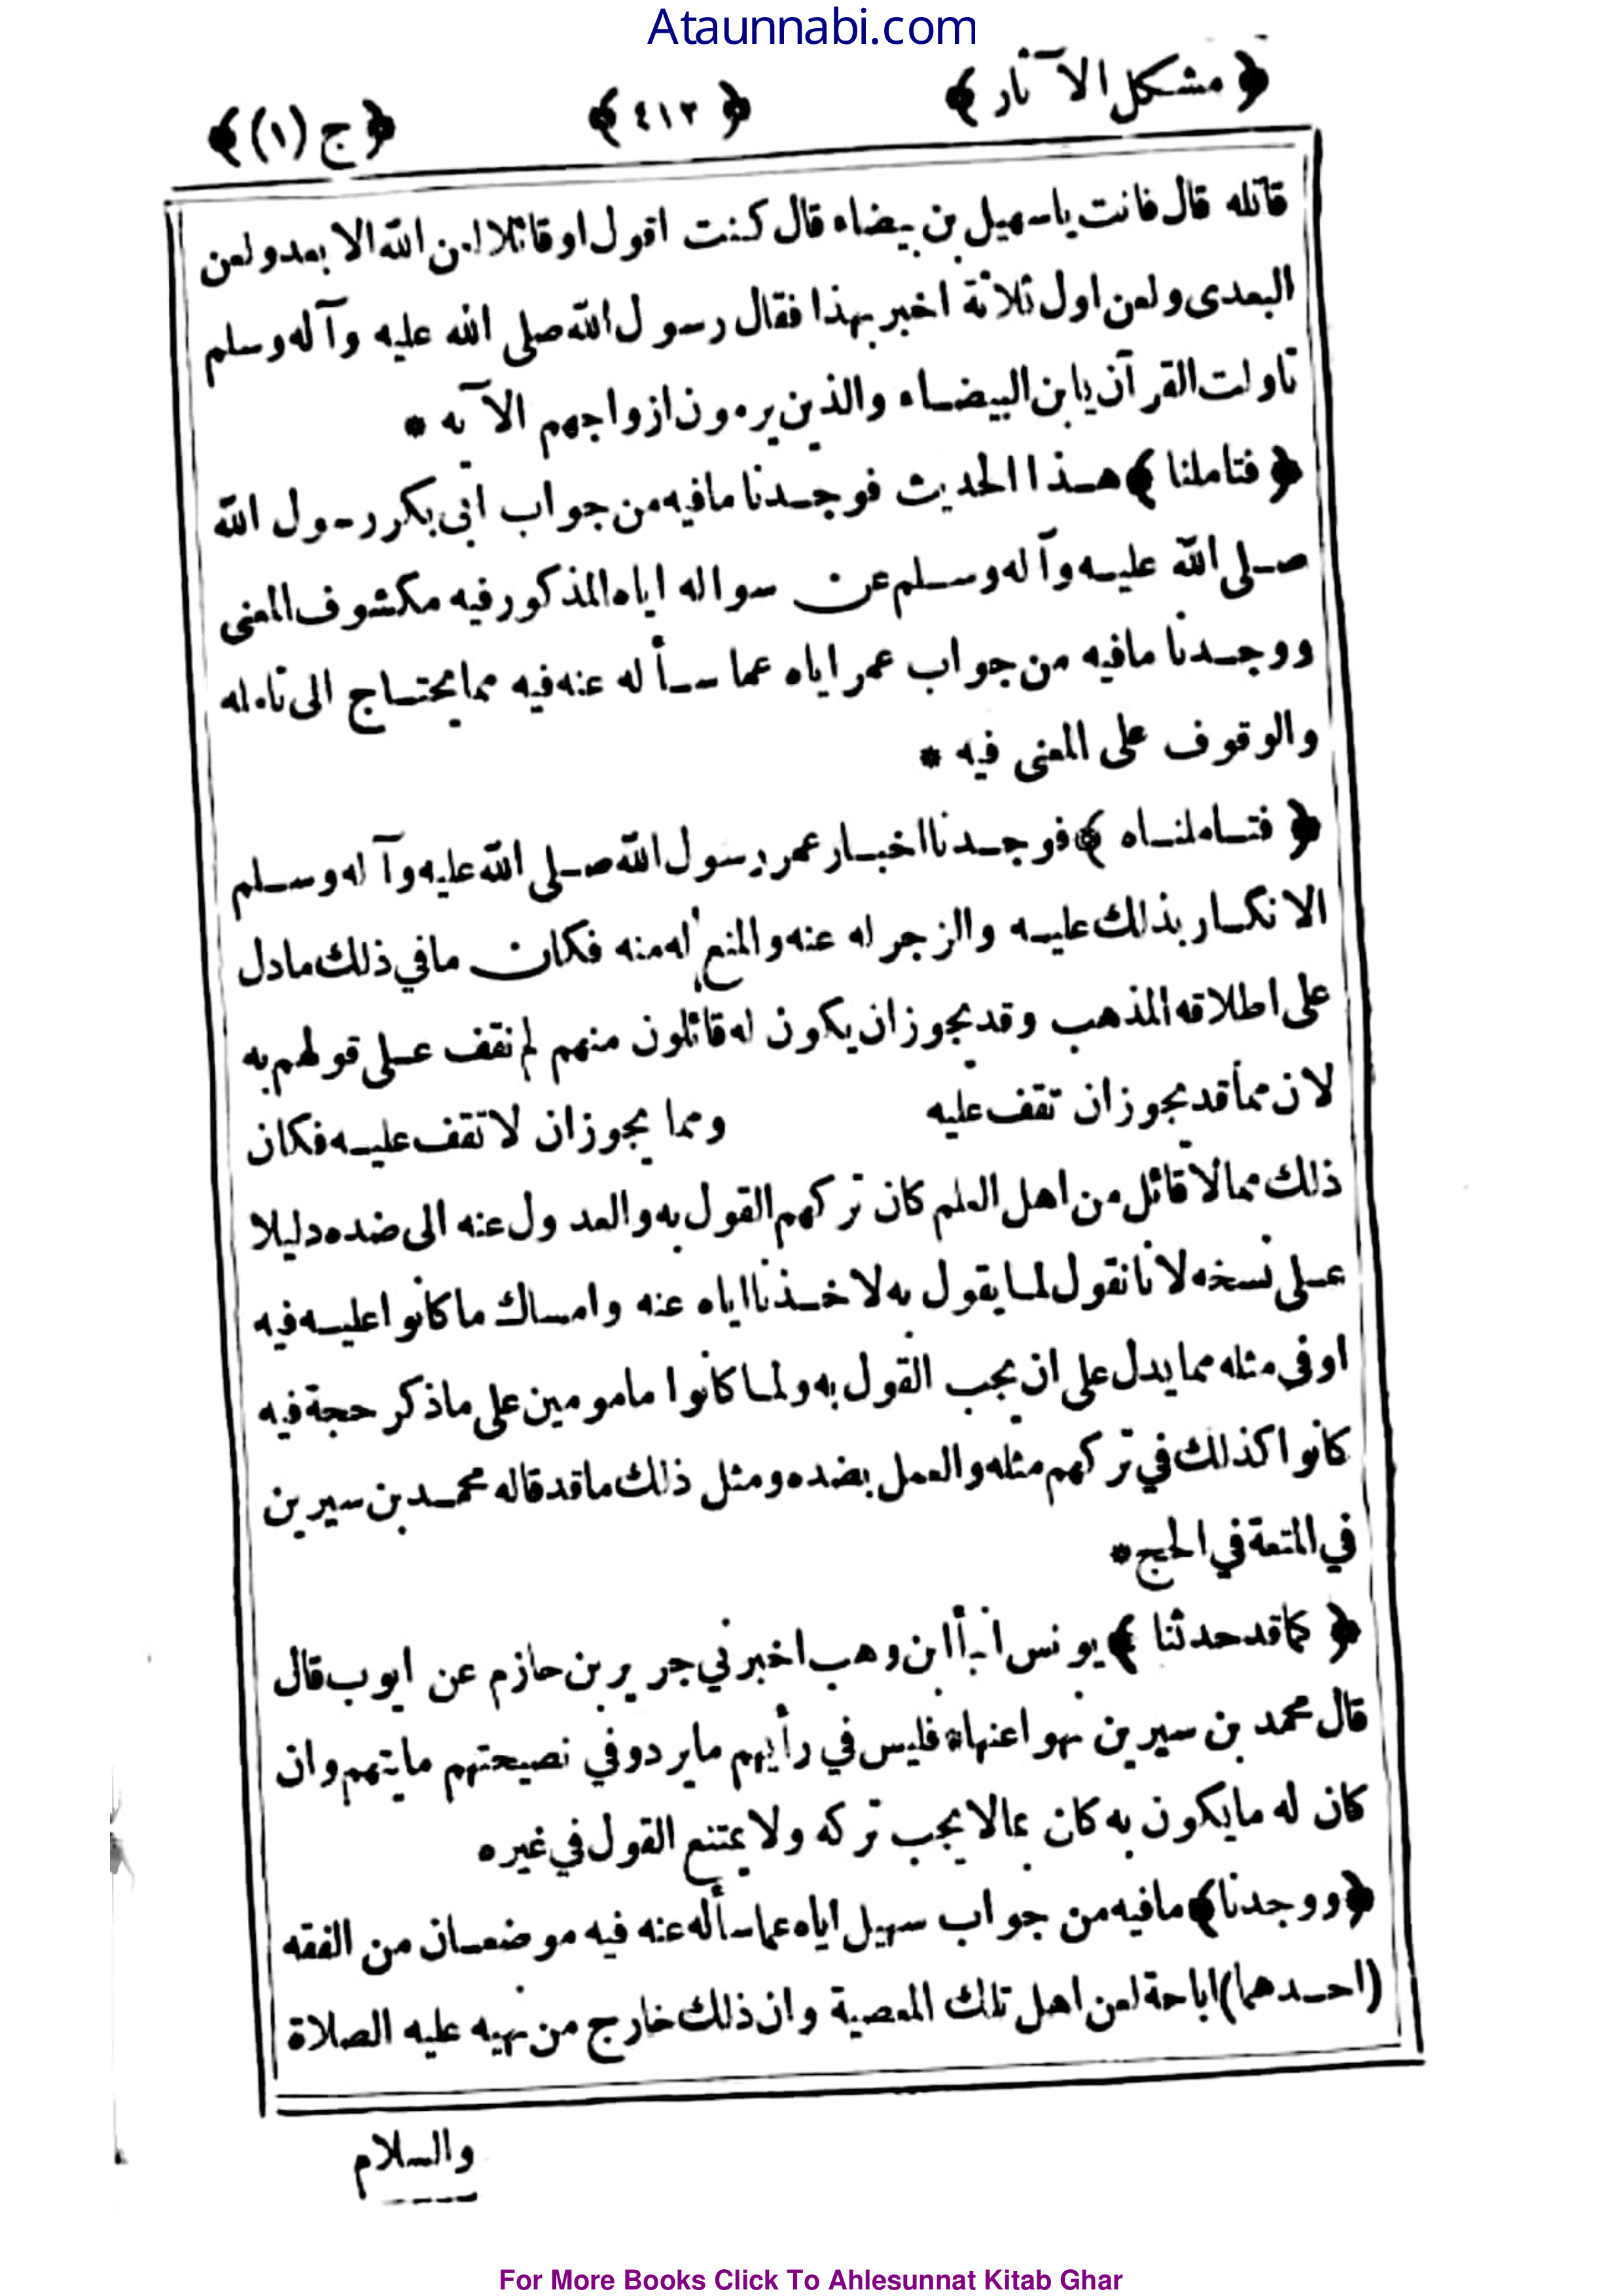 Ataunnabi.com
﴿ مشكل الآثار ﴾ ﴿ ٤١٣ ﴾ ﴿ ج (١) ﴾
قاتله قال فانت ياسهيل بن بيضاء قال كنت اقول او قائلا لعن الله الا بعد ولعن
البعدى ولعن اول ثلاثة اخبر بهذا فقال رسول الله صلى الله عليه وآله وسلم
تاولت القرآن يا بن البيضاء والذين يرمون ازواجهم الآيه *
﴿ فتاملنا ﴾ هذا الحديث فوجدنا مافيه من جواب ابى بكر رسول الله
صلى الله عليه وآله وسلم عن سواله اياه المذكور فيه مكشوف المعنى
ووجدنا مافيه من جواب عمر اياه عما سأله عنه فيه مما يحتاج الى تامله
والوقوف على المعنى فيه *
﴿ فتاملناه ﴾ فوجدنا اخبار عمر رسول الله صلى الله عليه وآله وسلم
الانكار بذلك عليه والزجر له عنه والمنع له منه فكان مافي ذلك مادل
على اطلاقه المذهب وقد يجوز ان يكون له قائلون منهم لم نقف على قولهم به
لان مما قد يجوز ان تقف عليه ومما يجوز ان لا تقف عليه فكان
ذلك مما لا قائل من اهل العلم كان تركهم القول به والعدول عنه الى ضده دليلا
على نسخه لانا نقول لما يقول به لاخذنا اياه عنه وامساك ما كانوا عليه فيه
او في مثله مما يدل على ان يجب القول به ولما كانوا مامومين على ماذكر حجة فيه
كانوا كذلك في تركهم مثله والعمل بضده ومثل ذلك ماقد قاله محمد بن سيرين
في المتعة في الحج *
﴿ كما قد حدثنا ﴾ يونس انبأ ابن وهب اخبرني جرير بن حازم عن ايوب قال
قال محمد بن سيرين نهوا عنها فليس في رأيهم مايرد وفي نصيحتهم مايتهم وان
كان له مايكون به كان عالا يجب تركه ولا يمتنع القول في غيره
﴿ ووجدنا ﴾ مافيه من جواب سهيل اياه عما سأله عنه فيه موضعان من الفقه
(احدهما) اباحة لعن اهل تلك المعصية وان ذلك خارج من نهيه عليه الصلاة
والسلام
For More Books Click To Ahlesunnat Kitab Ghar